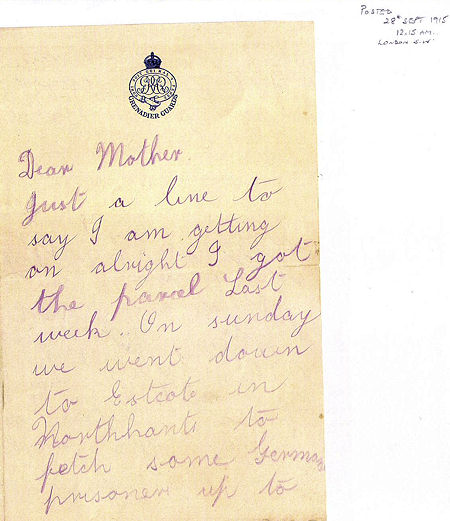 POSTED
28th SEPT 1915
12.15 AM.
LONDON S.W.
GRENADIER GUARDS
Dear Mother.
Just a line to
say I am getting
on alright I got
the parcel Last
week. On sunday
we went down
to Estcote in
Northhants to
fetch some German
prisoners up to